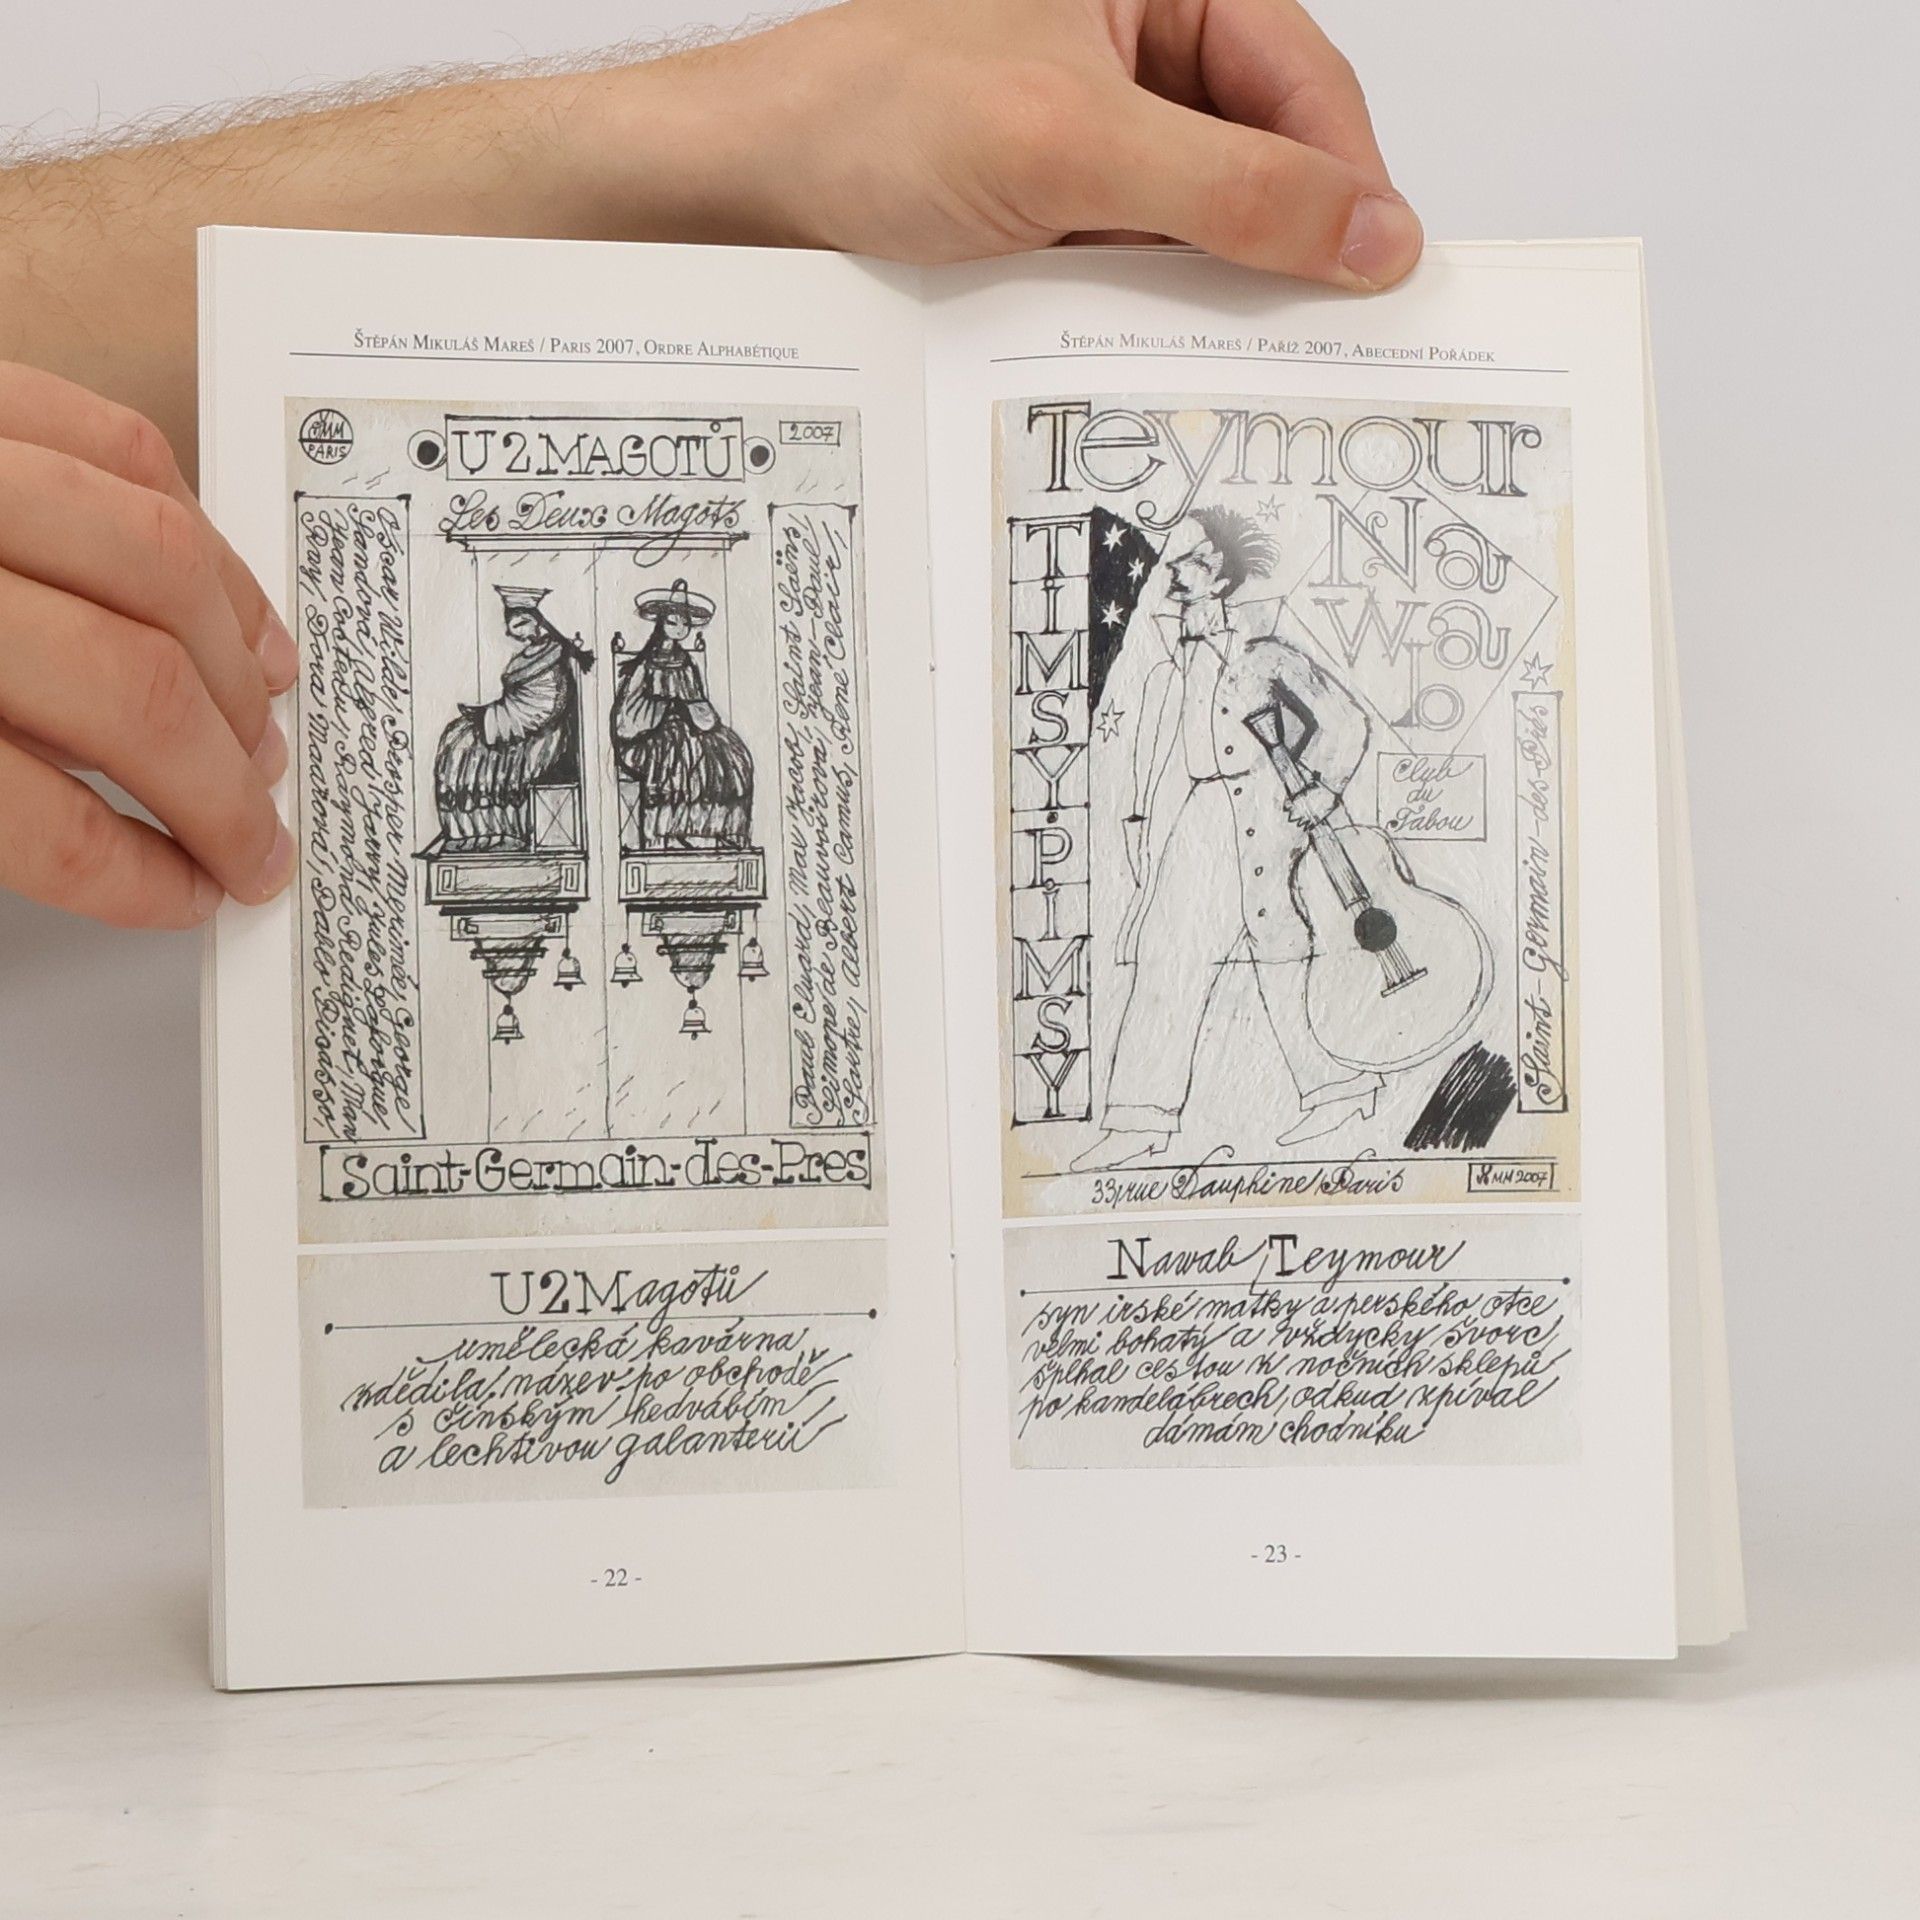 ŠTĚPÁN MIKULÁŠ MAREŠ / PARIS 2007, ORDRE ALPHABÉTIQUE
PARIS
U 2 MAGOTŮ
2007
Les Deux Magots
Oscar Wilde, Prosper Merimé, George
Sandová, Alfred Jarry, Jules Laforgue,
Jean Cocteau, Raymond Radiguet, Man
Ray, Dora Maarová, Pablo Picasso,
Paul Eluard, Max Jacob, Saint Saëns,
Simone de Beauvoirová, Jean-Paul
Sartre, Albert Camus, René Clair,
Saint-Germain-des-Pres
U2Magotů
umělecká kavárna
zdědila název po obchodě
s čínským hedvábím
a lechtivou galanterií
- 22 -
ŠTĚPÁN MIKULÁŠ MAREŠ / PAŘÍŽ 2007, ABECEDNÍ POŘÁDEK
Teymour
Nawab
TIMSYPIMSY
Club
du
Tabou
Saint-Germain-des-Prés
33, rue Dauphine, Paris
MM 2007
Nawab Teymour
syn irské matky a perského otce
velmi bohatý a vždycky švorc,
šplhal cestou z nočních sklepů
po kandelábrech, odkud zpíval
dámám chodníku
- 23 -